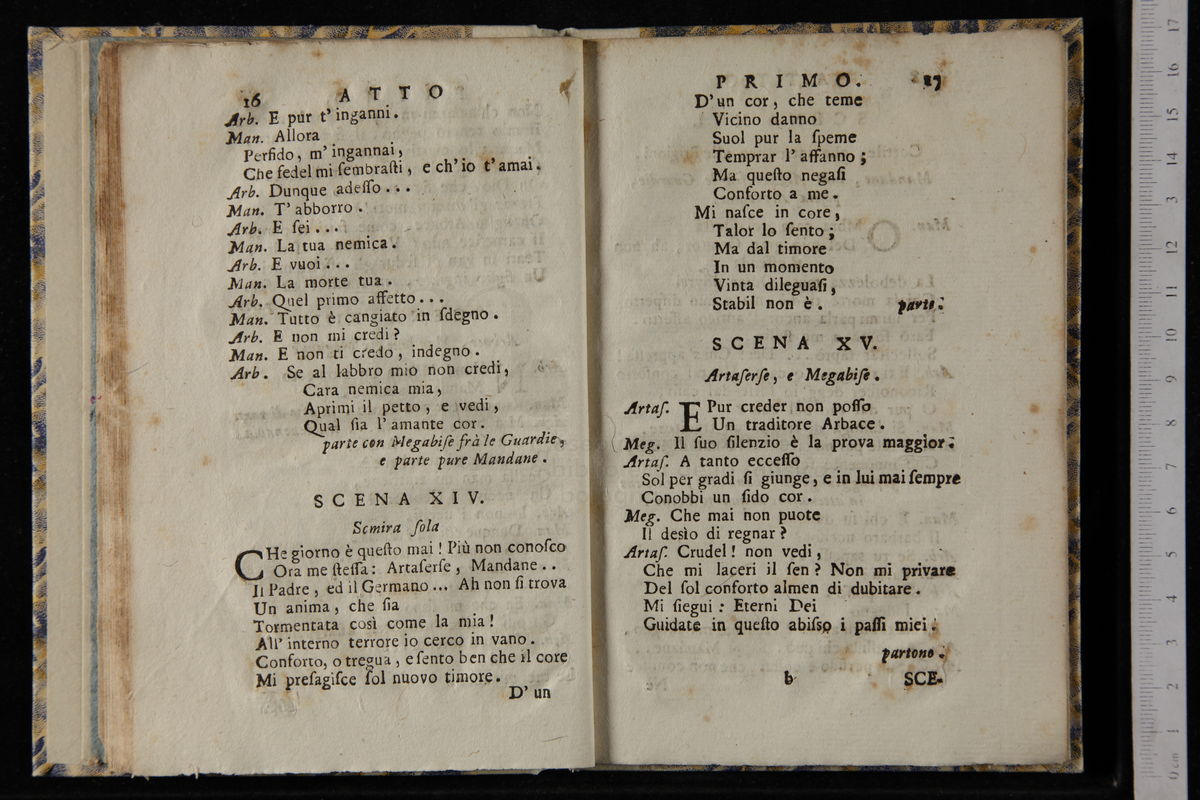 16 ATTO
Arb. E pur t' inganni.
Man. Allora
Perfido, m' ingannai,
Che fedel mi ſembraſti, e ch' io t' amai.
Arb. Dunque adeſſo...
Man. T' abborro.
Arb. E ſei...
Man. La tua nemica.
Arb. E vuoi...
Man. La morte tua.
Arb. Quel primo affetto...
Man. Tutto è cangiato in ſdegno.
Arb. E non mi credi?
Man. E non ti credo, indegno.
Arb. Se al labbro mio non credi,
Cara nemica mia,
Aprimi il petto, e vedi,
Qual ſia l' amante cor.
parte con Megabiſe frà le Guardie,
e parte pure Mandane.
SCENA XIV.
Semira ſola
CHe giorno è queſto mai! Più non conoſco
Ora me ſteſſa: Artaſerſe, Mandane..
Il Padre, ed il Germano... Ah non ſi trova
Un anima, che ſia
Tormentata così come la mia!
All' interno terrore io cerco in vano.
Conforto, o tregua, e ſento ben che il core
Mi preſagiſce ſol nuovo timore.
D' un
PRIMO. 17
D' un cor, che teme
Vicino danno
Suol pur la ſpeme
Temprar l' affanno;
Ma queſto negaſi
Conforto a me.
Mi naſce in core,
Talor lo ſento;
Ma dal timore
In un momento
Vinta dileguaſi,
Stabil non è. parte.
SCENA XV.
Artaſerſe, e Megabiſe.
Artaſ. E Pur creder non poſſo
Un traditore Arbace.
Meg. Il ſuo ſilenzio è la prova maggior.
Artaſ. A tanto ecceſſo
Sol per gradi ſi giunge, e in lui mai ſempre
Conobbi un fido cor.
Meg. Che mai non puote
Il desìo di regnar?
Artaſ. Crudel! non vedi,
Che mi laceri il ſen? Non mi privare
Del ſol conforto almen di dubitare.
Mi ſiegui: Eterni Dei
Guidate in queſto abiſſo i paſſi miei.
partono.
b SCE-
0 cm 1 2 3 4 5 6 7 8 9 10 11 12 13 14 15 16 17